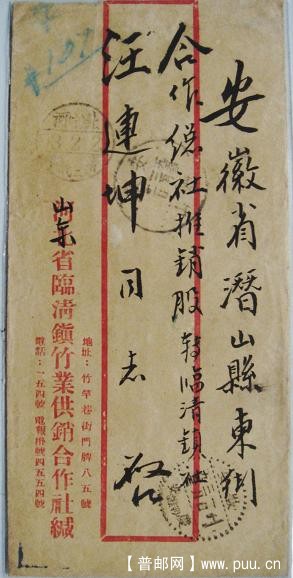 安徽省潛山縣東街
合作總社推銷股转臨清鎮社
汪連坤同志 啓
地址：竹竿巷街門牌八五號
山东
河北省臨清鎮竹業供銷合作社緘
電話：一五四號 電報掛號四五五四號
【普邮网】www.puu.cn